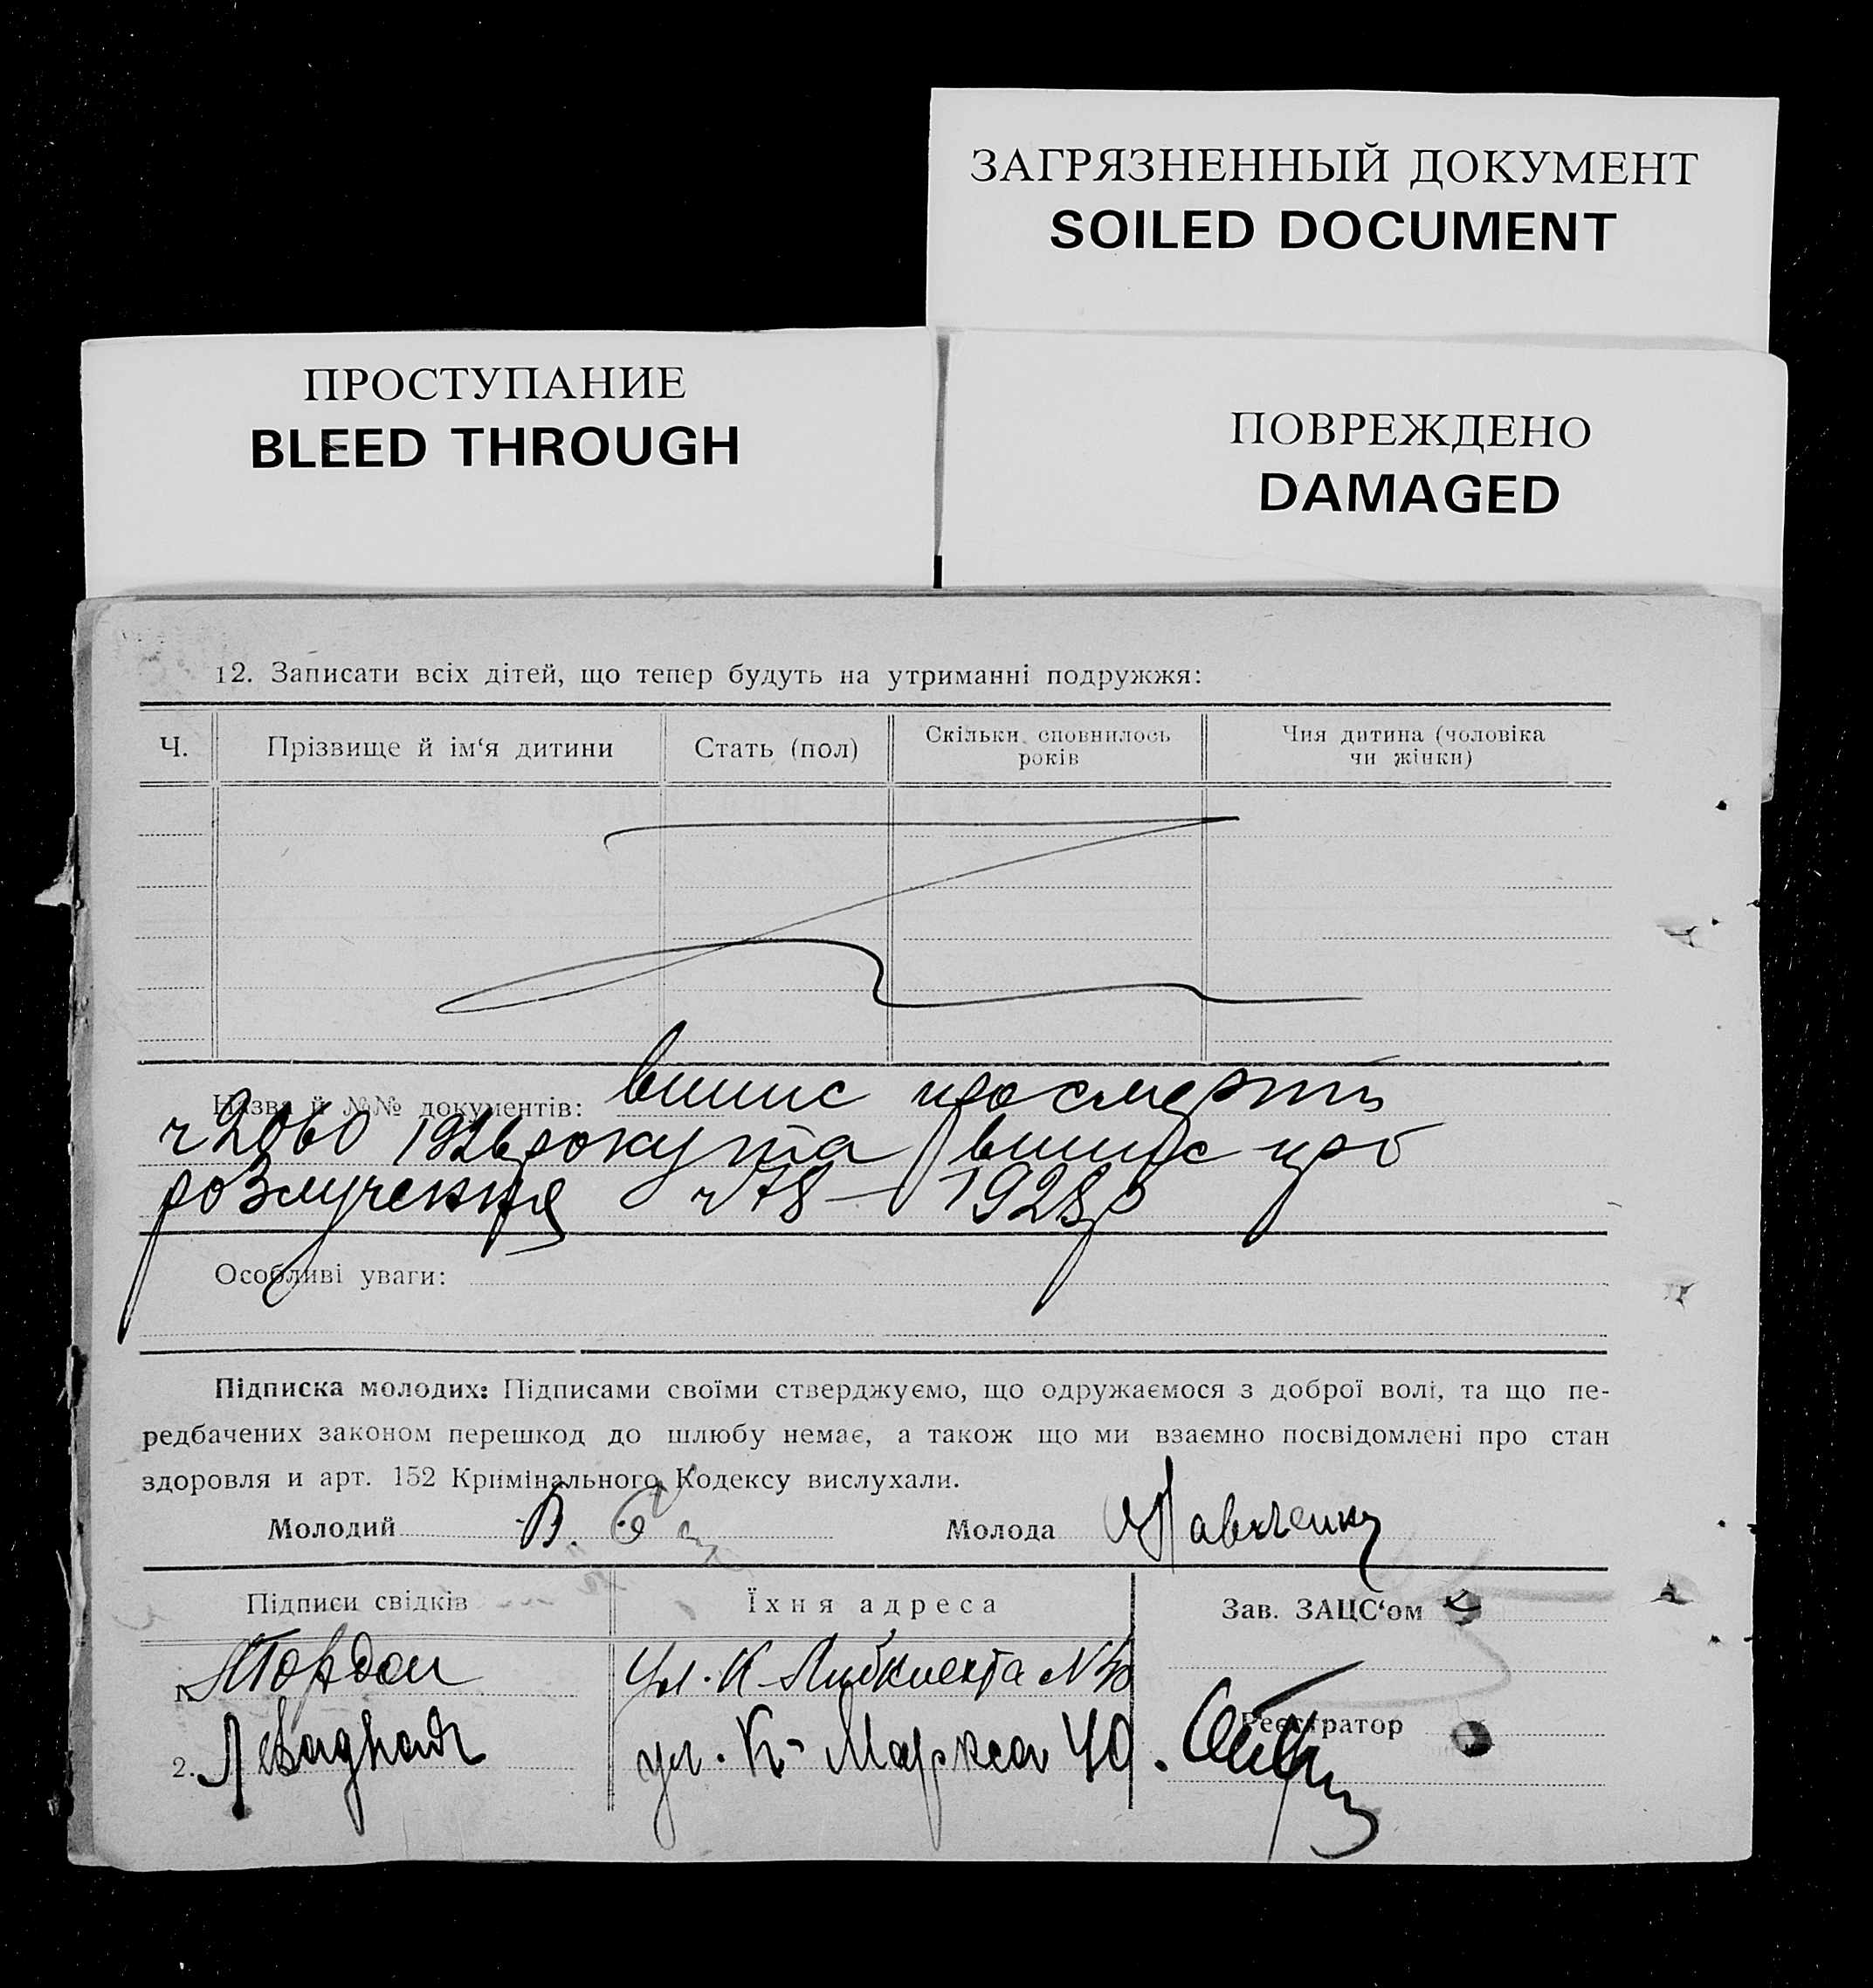 ЗАГРЯЗНЕННЫЙ ДОКУМЕНТ
SOILED DOCUMENT
ПРОСТУПАНИЕ
BLEED THROUGH
ПОВРЕЖДЕНО
DAMAGED
12. Записати всіх дітей, що тепер будуть на утриманні подружжя:
Ч.
Прізвище й ім‘я дитини
Стать (пол)
Скільки сповнилось
років
Чия дитина (чоловіка
чи жінки)
Назва й №№ документів: випис про смерть
ч 2060 1926 року та випис про
розлучення ч 78 — 1928 р
Особливі уваги:
Підписка молодих: Підписами своїми стверджуємо, що одружаємося з доброї волі, та що пе-
редбачених законом перешкод до шлюбу немає, а також що ми взаємно посвідомлені про стан
здоровля и арт. 152 Кримінального Кодексу вислухали.
Молодий В.
Молода
Підписи свідків
Їхня адреса
Зав. ЗАЦС‘ом
1. Гордон
Ул. К. Либкнехта N
Реєстратор
2.
ул. К. Маркса 40.